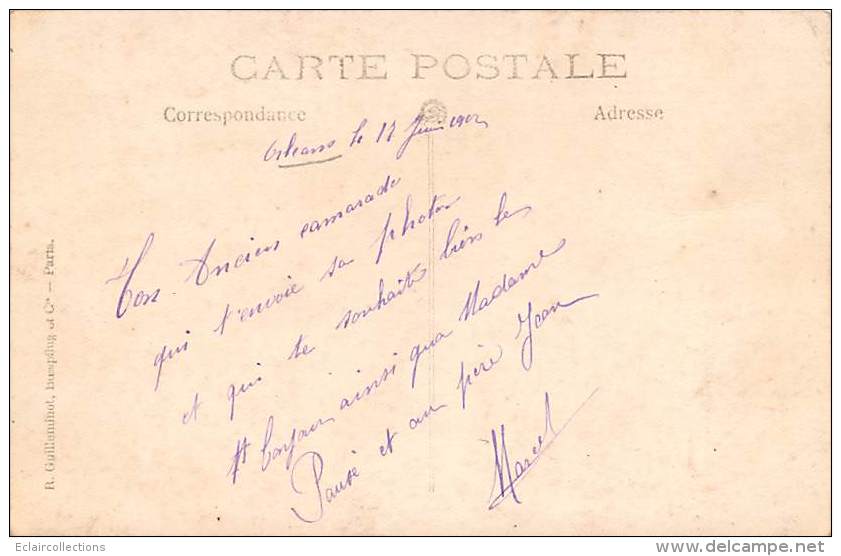 CARTE POSTALE
Correspondance
Adresse
Orleans le 17 Juin 1902
Ton Ancien camarade
qui t'envoie sa photo
et qui te souhaite bien le
Bonjour ainsi qua Madame
et au père Jean
Marcel
R. Guilleminot, Bœspflug et Cie — Paris.
Eclaircollections
www.delcampe.net